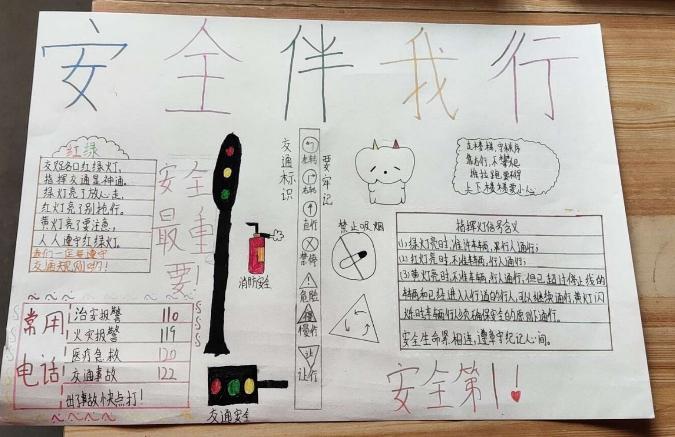 安全伴我行
红绿
交路各口红绿灯,
指挥交通显神通,
绿灯亮了放心走,
红灯亮了别抢行。
黄灯亮了要注意,
人人遵守红绿灯。
我们一定要遵守
交通规则
安全
最重
要!
常用
电话
治安报警 110
火灾报警 119
医疗急救 120
交通事故 122
出了事故快点打!
消防安全
交通安全
交通标识
要牢记
左转
右转
直行
禁停
危险
慢行
让
让行
禁止吸烟
上下楼梯要小心
指挥灯信号含义
(1)绿灯亮时,准许车辆,行人通行;
(2)红灯亮时,不准车辆,行人通行;
(3)黄灯亮时,不准车辆,行人通行,但已超过停止线的
车辆和已经进入人行道的行人,可以继续通行,黄灯闪
烁时车辆行人必须确保安全的原则下通行。
安全生命紧相连,遵章守纪记心间。
安全第1!